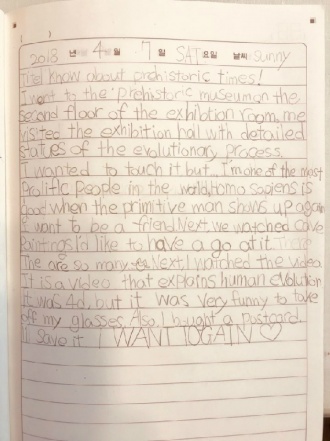 ( )
2018 년 4 월 7 일 SAT 요일 날씨 sunny
Title) know about prehistoric times!
I went to the prehistoric museum on the
second floor of the exhibition room, me
visited the exhibition hall with detailed
statues of the evolutionary process.
I wanted to touch it but... I'm one of the most
Prolific people in the world, Homo sapiens is
good when the primitive man shows up again
I want to be a friend. Next, we watched cave
Paintings I'd like to have a go at it.
The are so many Next I watched the video
It is a video that explains human evolution
It was 4d, but it was very funny to take
off my glasses. Also, I bought a postcard.
I'll save it I WANT TO GAIN ♡